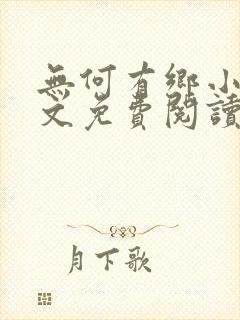 無何有鄉小
文免費閱讀
月下歌